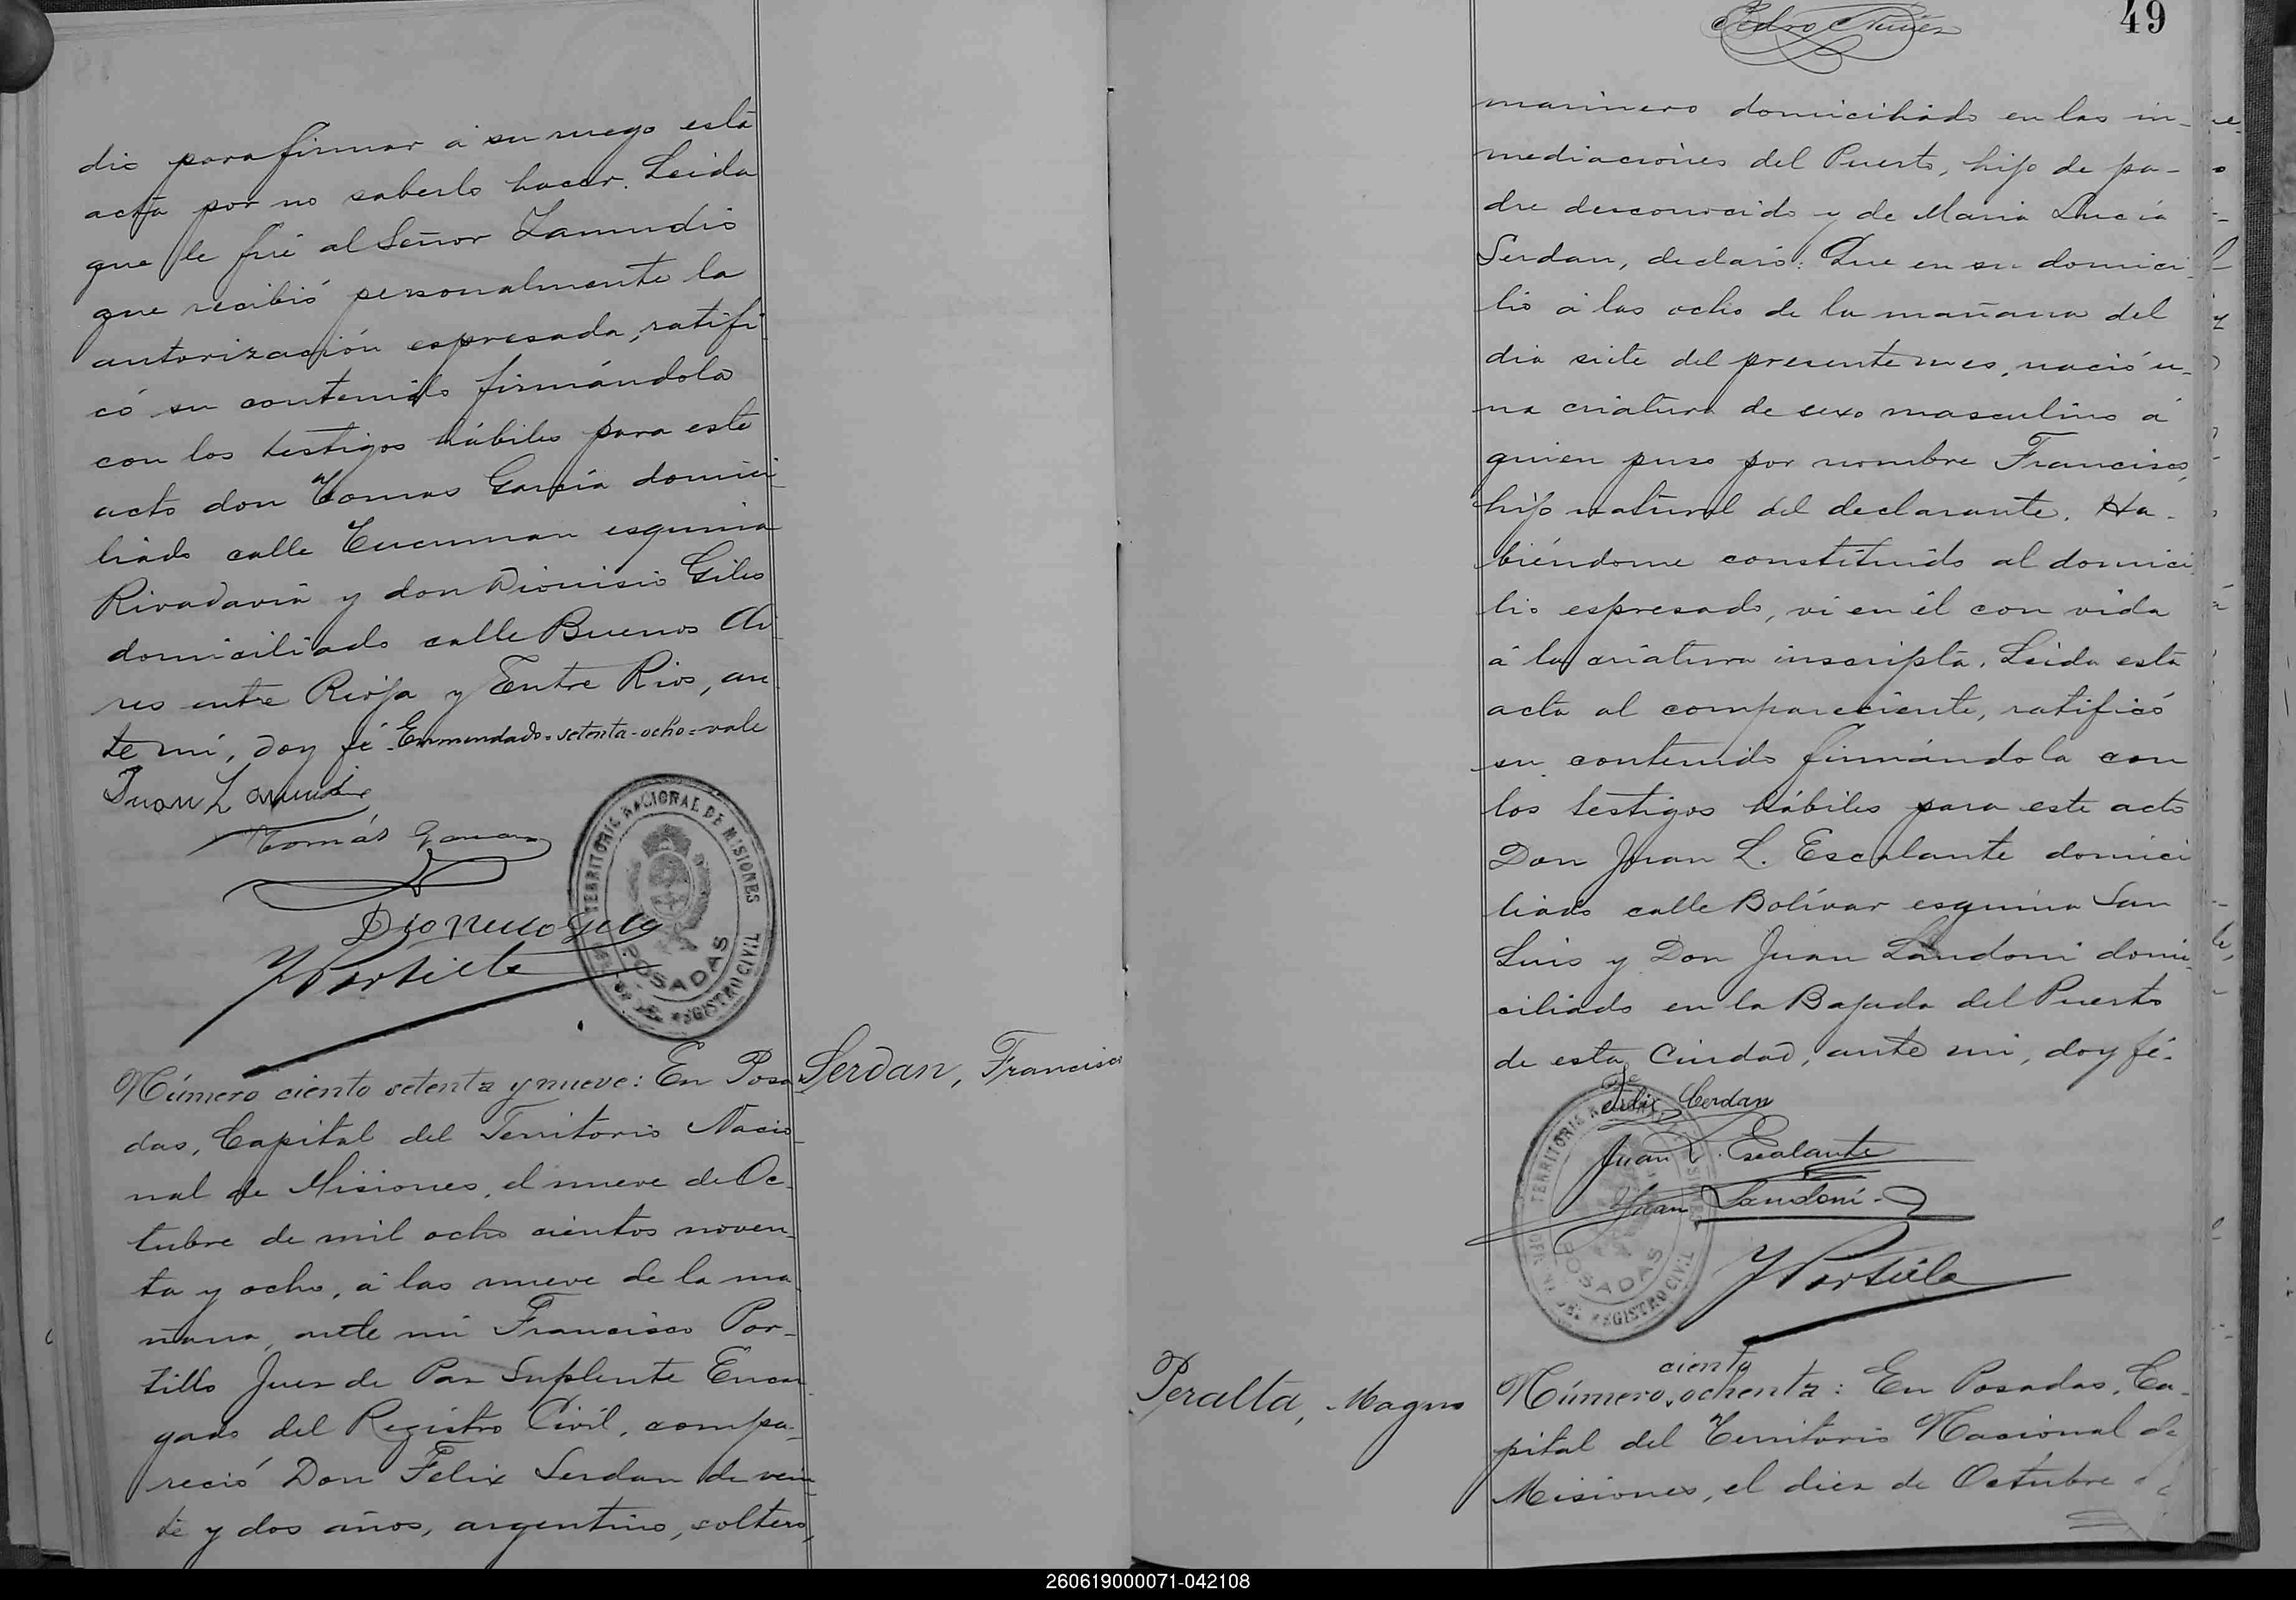 dio para firmar á su ruego esta
acta por no saberlo hacer. Leida
que le fué al Señor Zamudio
que recibió personalmente la
autorización espresada, ratifi
có su contenido firmándola
con los testigos hábiles para este
acto don Tomas García domici-
liado calle Tucuman esquina
Rivadavia y don Dionisio Giles
domiciliado calle Buenos Ai-
res entre Rioja y Entre Rios, an
te mí, doy fé. Enmendado=setenta-ocho=vale
Juan Zamudio
Tomás Garcia
Dionicio Gile
TERRITORIO NACIONAL DE MISIONES
POSADAS
DEL REGISTRO CIVIL
F Portillo
Número ciento setenta y nueve: En Posa
Serdan, Francisco
das, Capital del Territorio Nacio-
nal de Misiones, el nueve de Oc-
tubre de mil ocho cientos noven-
ta y ocho, á las nueve de la ma
ñana, ante mi Francisco Por-
tillo Juez de Paz Suplente Encar
gado del Registro Civil, compa-
reció Don Felix Serdan de vein-
te y dos años, argentino, soltero,
Pedro Nuñez
49
marinero domiciliado en las in-
mediaciones del Puerto, hijo de pa-
dre desconocido y de Maria Lucía
Serdan, declaró: Que en su domici-
lio á las ocho de la mañana del
dia siete del presente mes, nació u-
na criatura de sexo masculino á
quien puso por nombre Francisco,
hijo natural del declarante. Ha-
biéndome constituido al domici
lio espresado, vi en él con vida
á la criatura inscripta. Leida esta
acta al compareciente, ratificó
su contenido firmándola con
los testigos hábiles para este acto
Don Juan L. Escalante domici
liado calle Bolívar esquina San
Luis y Don Juan Landoni domi-
ciliado en la Bajada del Puerto
de esta Ciudad, ante mi, doy fé.
Felix Cerdan
Juan L. Escalante
Juan Landoni
TERRITORIO NACIONAL DE MISIONES
POSADAS
OFICINA DEL REGISTRO CIVIL
F Portillo
Peralta, Magno
ciento
Número ochenta: En Posadas, Ca-
pital del Territorio Nacional de
Misiones, el diez de Octubre
260619000071-042108